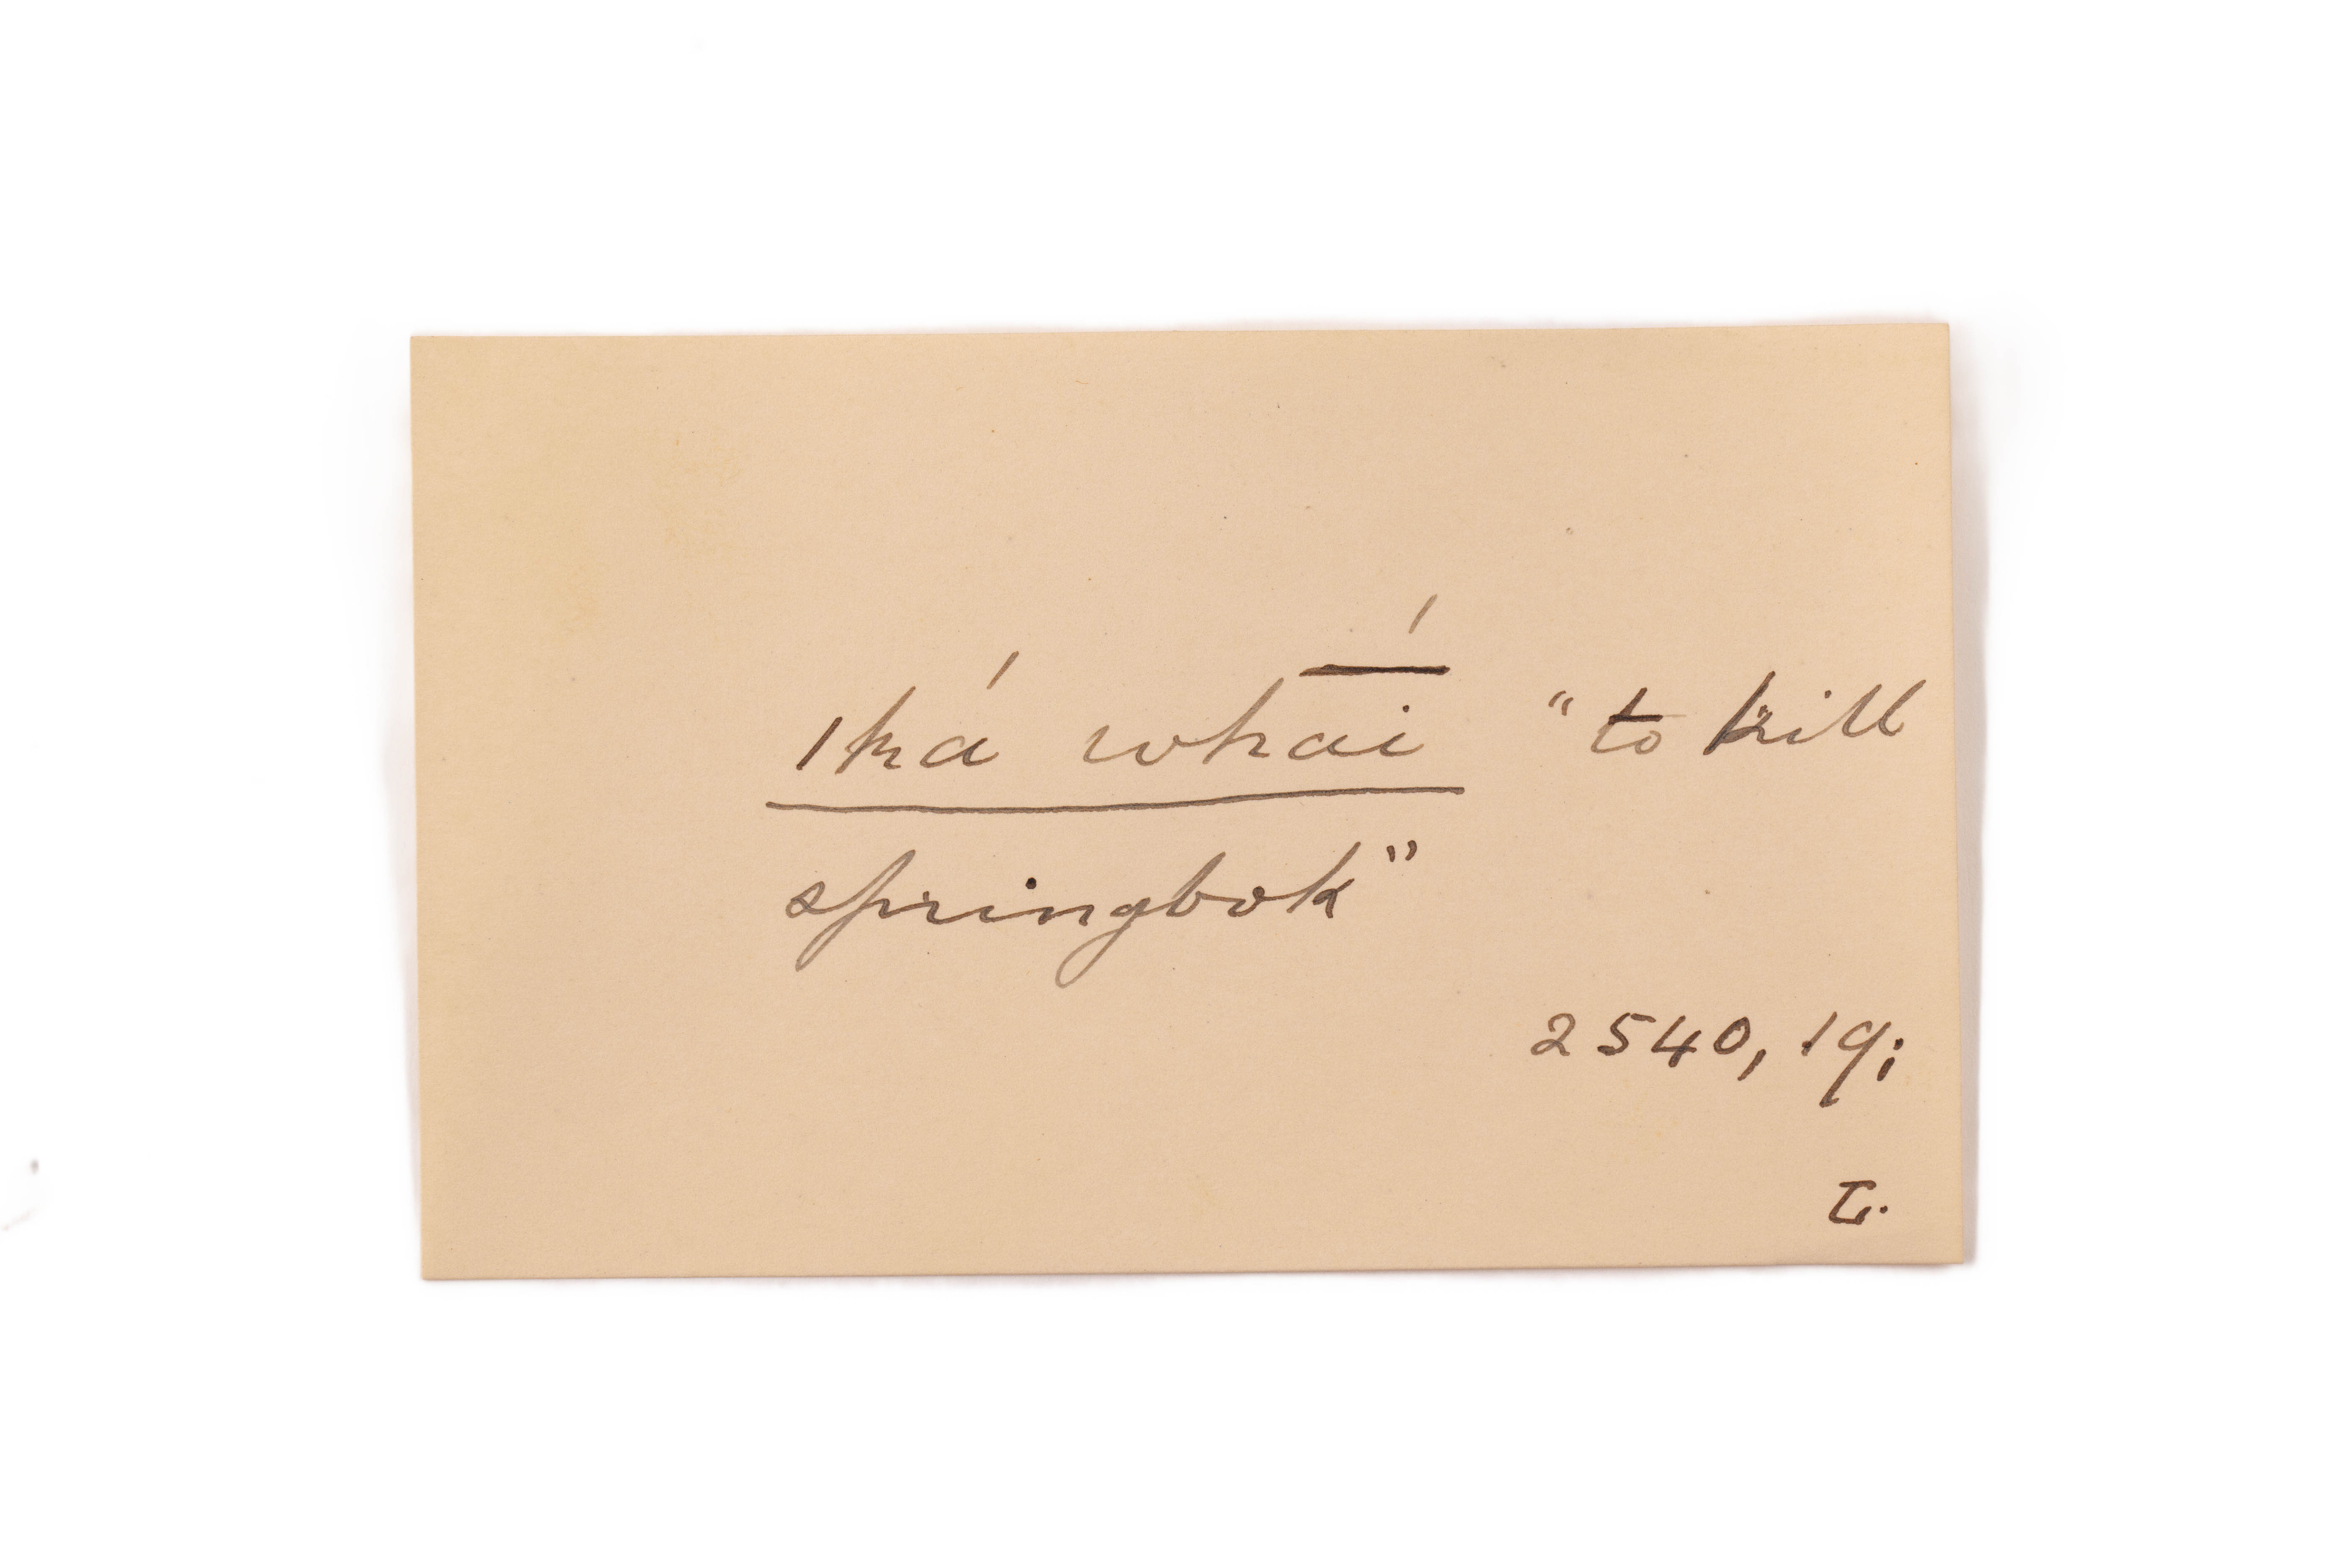 |ká whā́i "to kill
springbok"
2540, 19;